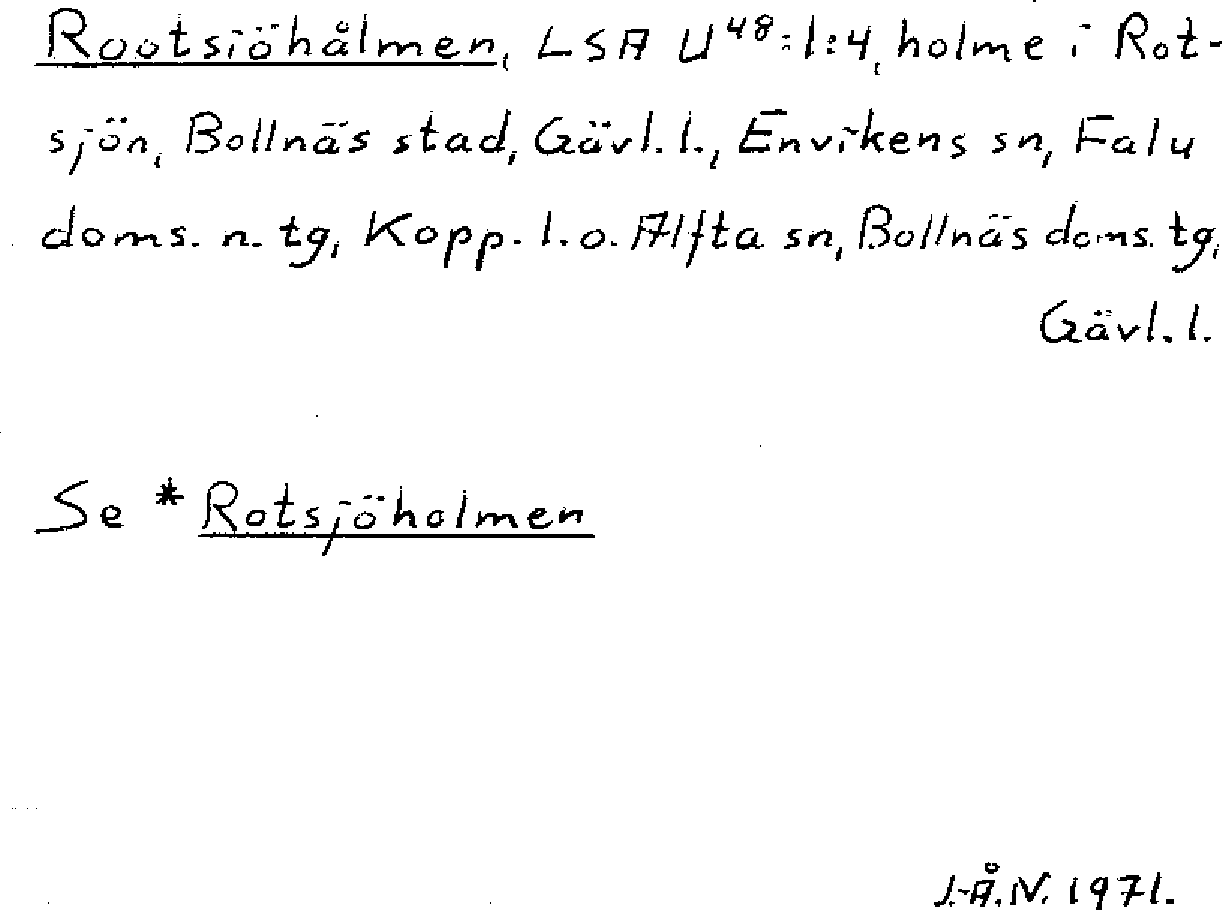 Rootsiöhålmen, LSA U48:1:4, holme i Rot-
sjön, Bollnäs stad, Gävl. l., Envikens sn, Falu
doms. n. tg, Kopp. l. o. Alfta sn, Bollnäs doms. tg,
Gävl. l.
Se * Rotsjöholmen
J.-Å. N. 1971.